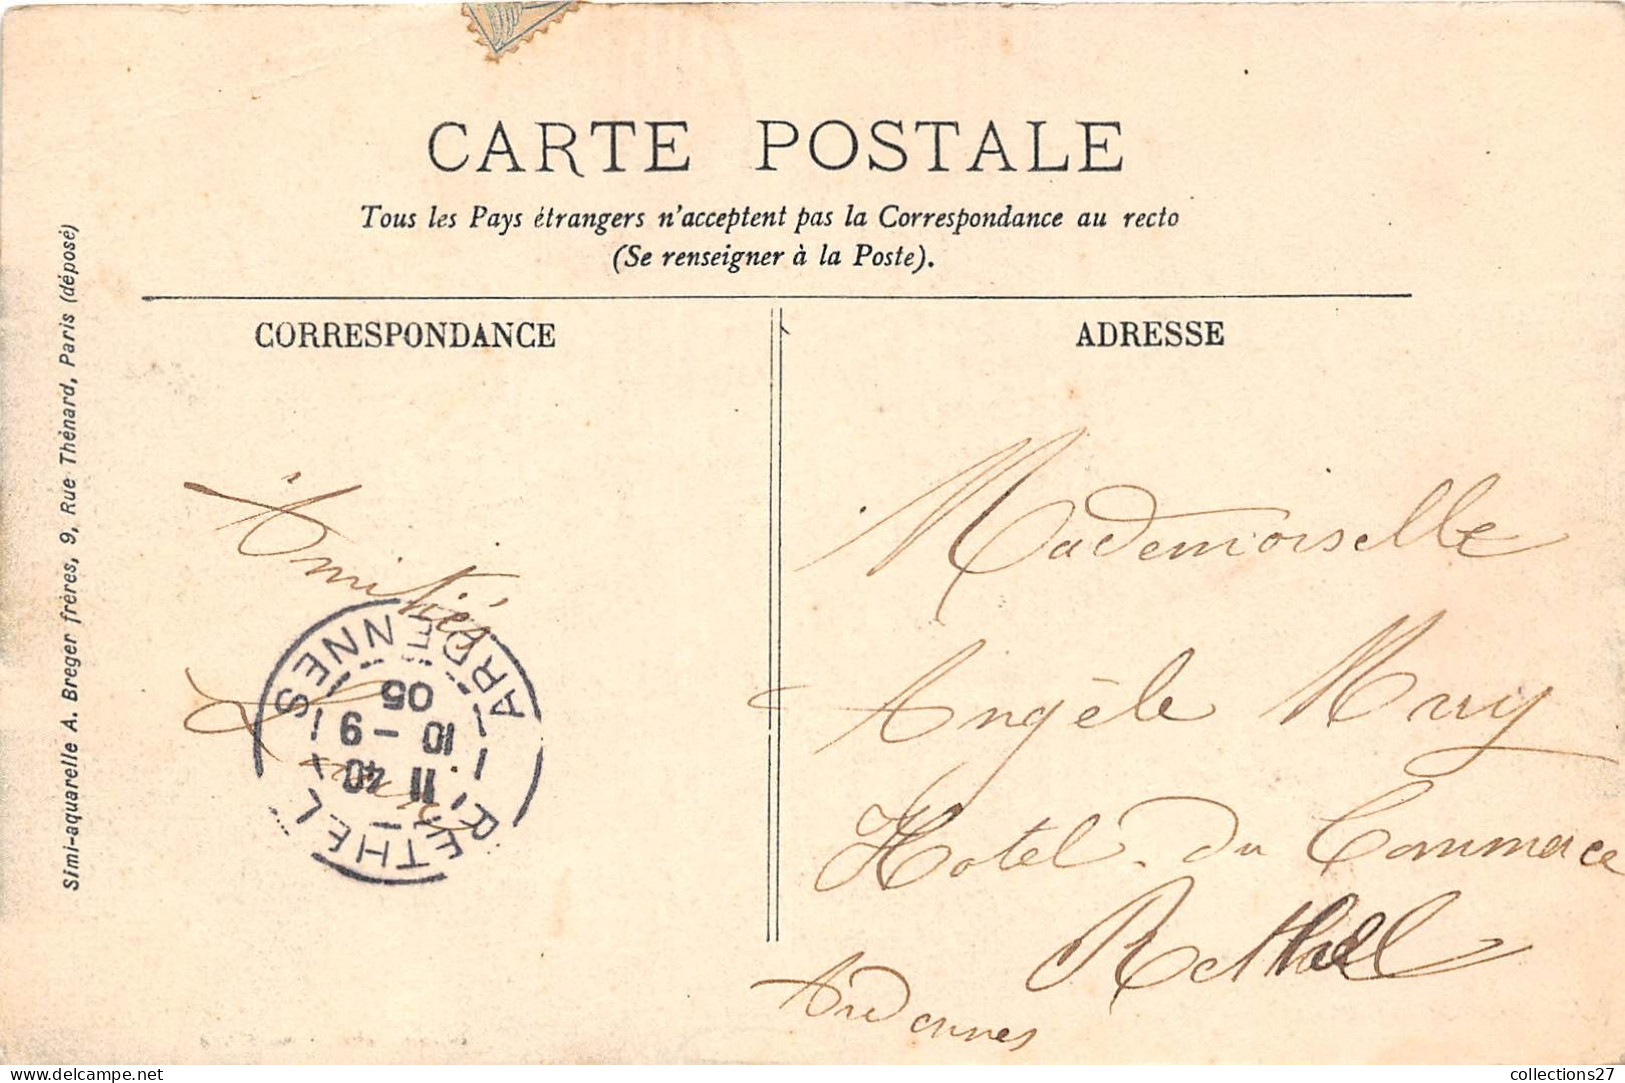 CARTE POSTALE
Tous les Pays étrangers n'acceptent pas la Correspondance au recto
(Se renseigner à la Poste).
CORRESPONDANCE
ADRESSE
Simi-aquarelle A. Breger frères, 9, Rue Thénard, Paris (déposé)
Amitiés
RETHEL
ARDENNES
11 40
10 - 9
05
Mademoiselle
Angèle
Hotel du Commerce
Rethel
Ardennes
collections27